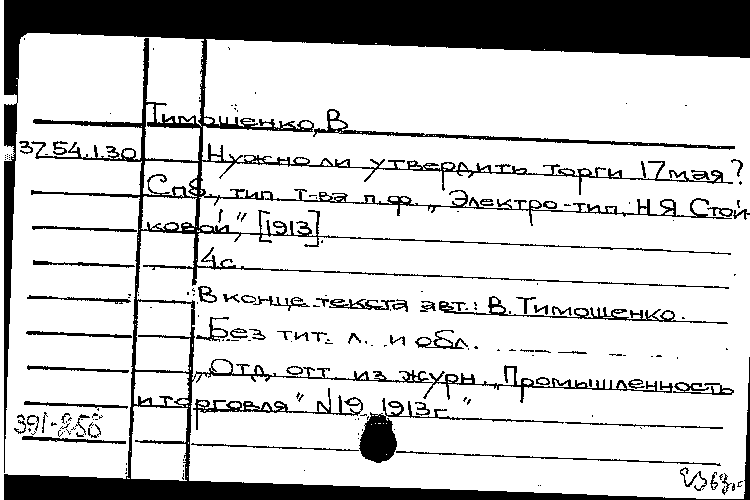 Тимошенко, В
37.54.1.30 Нужно ли утвердить торги 17 мая?
Спб., тип. т-ва п.ф. „Электро-тип. Н.Я Стой-
ковой", [1913].
4с.
В конце текста авт.: В. Тимошенко.
Без тит. л. и обл.
„Отд. отт. из журн. „Промышленность
и торговля" №19 1913г."
391-858